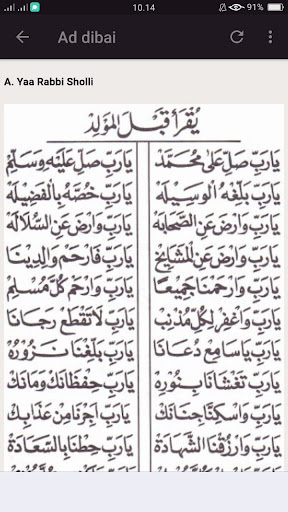 10.14
91%
Ad dibai
A. Yaa Rabbi Sholli
يُقْرَأُ قَبْلَ الْمَوْلِدِ
يَارَبِّ صَلِّ عَلَى مُحَمَّدْ يَارَبِّ صَلِّ عَلَيْهِ وَسَلِّمْ
يَارَبِّ بَلِّغْهُ الْوَسِيلَهْ يَارَبِّ خُصَّهْ بِالْفَضِيلَهْ
يَارَبِّ وَارْضَ عَنِ الصَّحَابَهْ يَارَبِّ وَارْضَ عَنِ السُّلَالَهْ
يَارَبِّ وَارْضَ عَنِ الْمَشَايِخْ يَارَبِّ فَارْحَمْ وَالِدِينَا
يَارَبِّ وَارْحَمْنَا جَمِيعًا يَارَبِّ وَارْحَمْ كُلَّ مُسْلِمْ
يَارَبِّ وَاغْفِرْ لِكُلِّ مُذْنِبْ يَارَبِّ لَاتَقْطَعْ رَجَانَا
يَارَبِّ يَاسَامِعْ دُعَانَا يَارَبِّ بَلِّغْنَا نَزُورُهْ
يَارَبِّ تَغْشَانَا بِنُورِهْ يَارَبِّ حِفْظَانَكْ وَمَانَكْ
يَارَبِّ وَاسْكِنَّا جِنَانَكْ يَارَبِّ اَجِرْنَا مِنْ عَذَابِكْ
يَارَبِّ وَارْزُقْنَا الشَّهَادَةْ يَارَبِّ حِطْنَا بِالسَّعَادَةْ